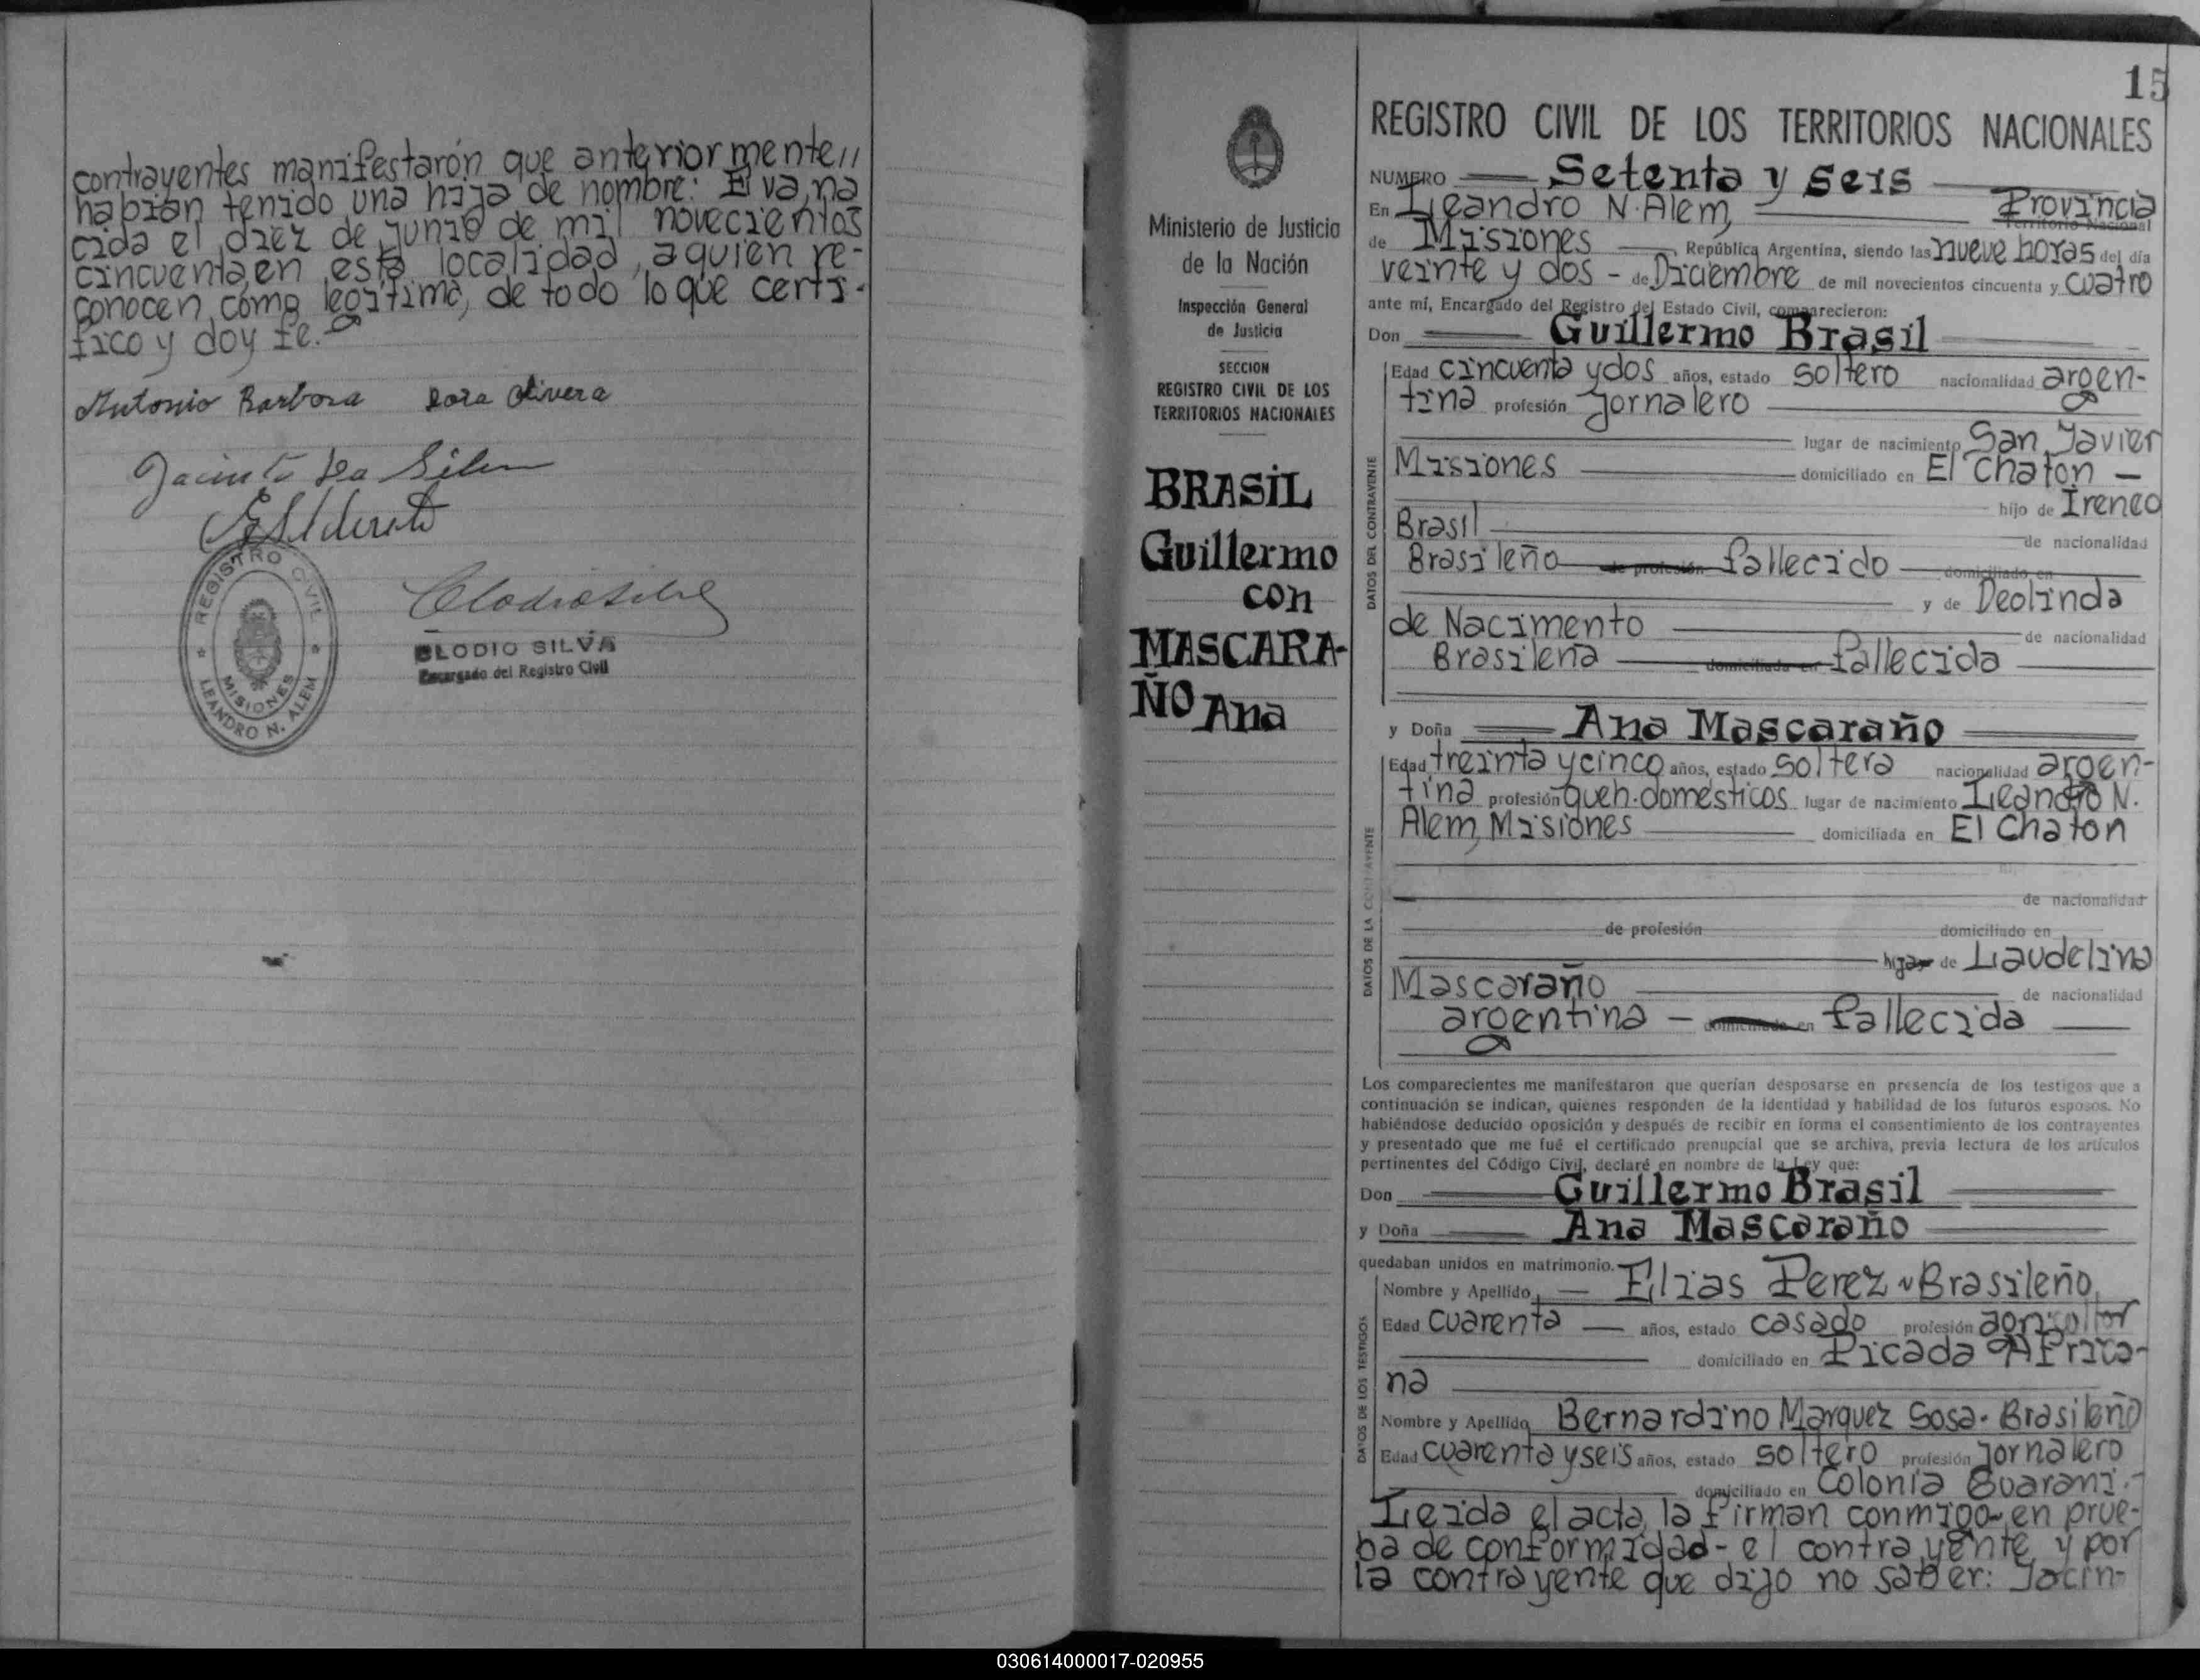 contrayentes manifestarón que anteriormente//
habian tenido una hija de nombre: Elva, na
cida el diez de junio de mil novecientos
cincuenta, en esta localidad, a quien re-
conocen como legítima, de todo lo que certi-
fico y doy fe.
Antonio Barbosa Rosa Olivera
Jacinto Da Silva
REGISTRO CIVIL
MISIONES
LEANDRO N. ALEM
Clodio Silva
CLODIO SILVA
Encargado del Registro Civil
15
Ministerio de Justicia
de la Nación
Inspección General
de Justicia
SECCION
REGISTRO CIVIL DE LOS
TERRITORIOS NACIONALES
BRASIL
Guillermo
con
MASCARA-
ÑO Ana
REGISTRO CIVIL DE LOS TERRITORIOS NACIONALES
NUMERO Setenta y seis
En Leandro N. Alem, Provincia
Territorio Nacional
de Misiones República Argentina, siendo las nueve horas del día
veinte y dos - de Diciembre de mil novecientos cincuenta y cuatro
ante mí, Encargado del Registro del Estado Civil, comparecieron:
Don Guillermo Brasil
DATOS DEL CONTRAYENTE
Edad cincuenta y dos años, estado soltero nacionalidad argen-
tina profesión jornalero
lugar de nacimiento San Javier
Misiones domiciliado en El Chaton -
hijo de Ireneo
Brasil de nacionalidad
Brasileño de profesión fallecido domiciliado en
y de Deolinda
de Nacimento de nacionalidad
Brasileña domiciliada en fallecida
y Doña Ana Mascaraño
DATOS DE LA CONTRAYENTE
Edad treinta y cinco años, estado soltera nacionalidad argen-
tina profesión queh. domésticos lugar de nacimiento Leandro N.
Alem, Misiones domiciliada en El Chaton
de nacionalidad
de profesión domiciliado en
hija de Laudelina
Mascaraño de nacionalidad
argentina - domiciliada en fallecida
Los comparecientes me manifestaron que querían desposarse en presencia de los testigos que a
continuación se indican, quienes responden de la identidad y habilidad de los futuros esposos. No
habiéndose deducido oposición y después de recibir en forma el consentimiento de los contrayentes
y presentado que me fué el certificado prenupcial que se archiva, previa lectura de los artículos
pertinentes del Código Civil, declaré en nombre de la Ley que:
Don Guillermo Brasil
y Doña Ana Mascaraño
quedaban unidos en matrimonio.
DATOS DE LOS TESTIGOS
Nombre y Apellido Elias Perez - Brasileño,
Edad cuarenta años, estado casado profesión agricultor
domiciliado en Picada Africa-
na
Nombre y Apellido Bernardino Marquez Sosa - Brasileño
Edad cuarenta y seis años, estado soltero profesión jornalero
domiciliado en Colonia Guarani.-
Leida el acta, la firman conmigo, en prue-
ba de conformidad - el contrayente, y por
la contrayente que dijo no saber: Jacin-
030614000017-020955